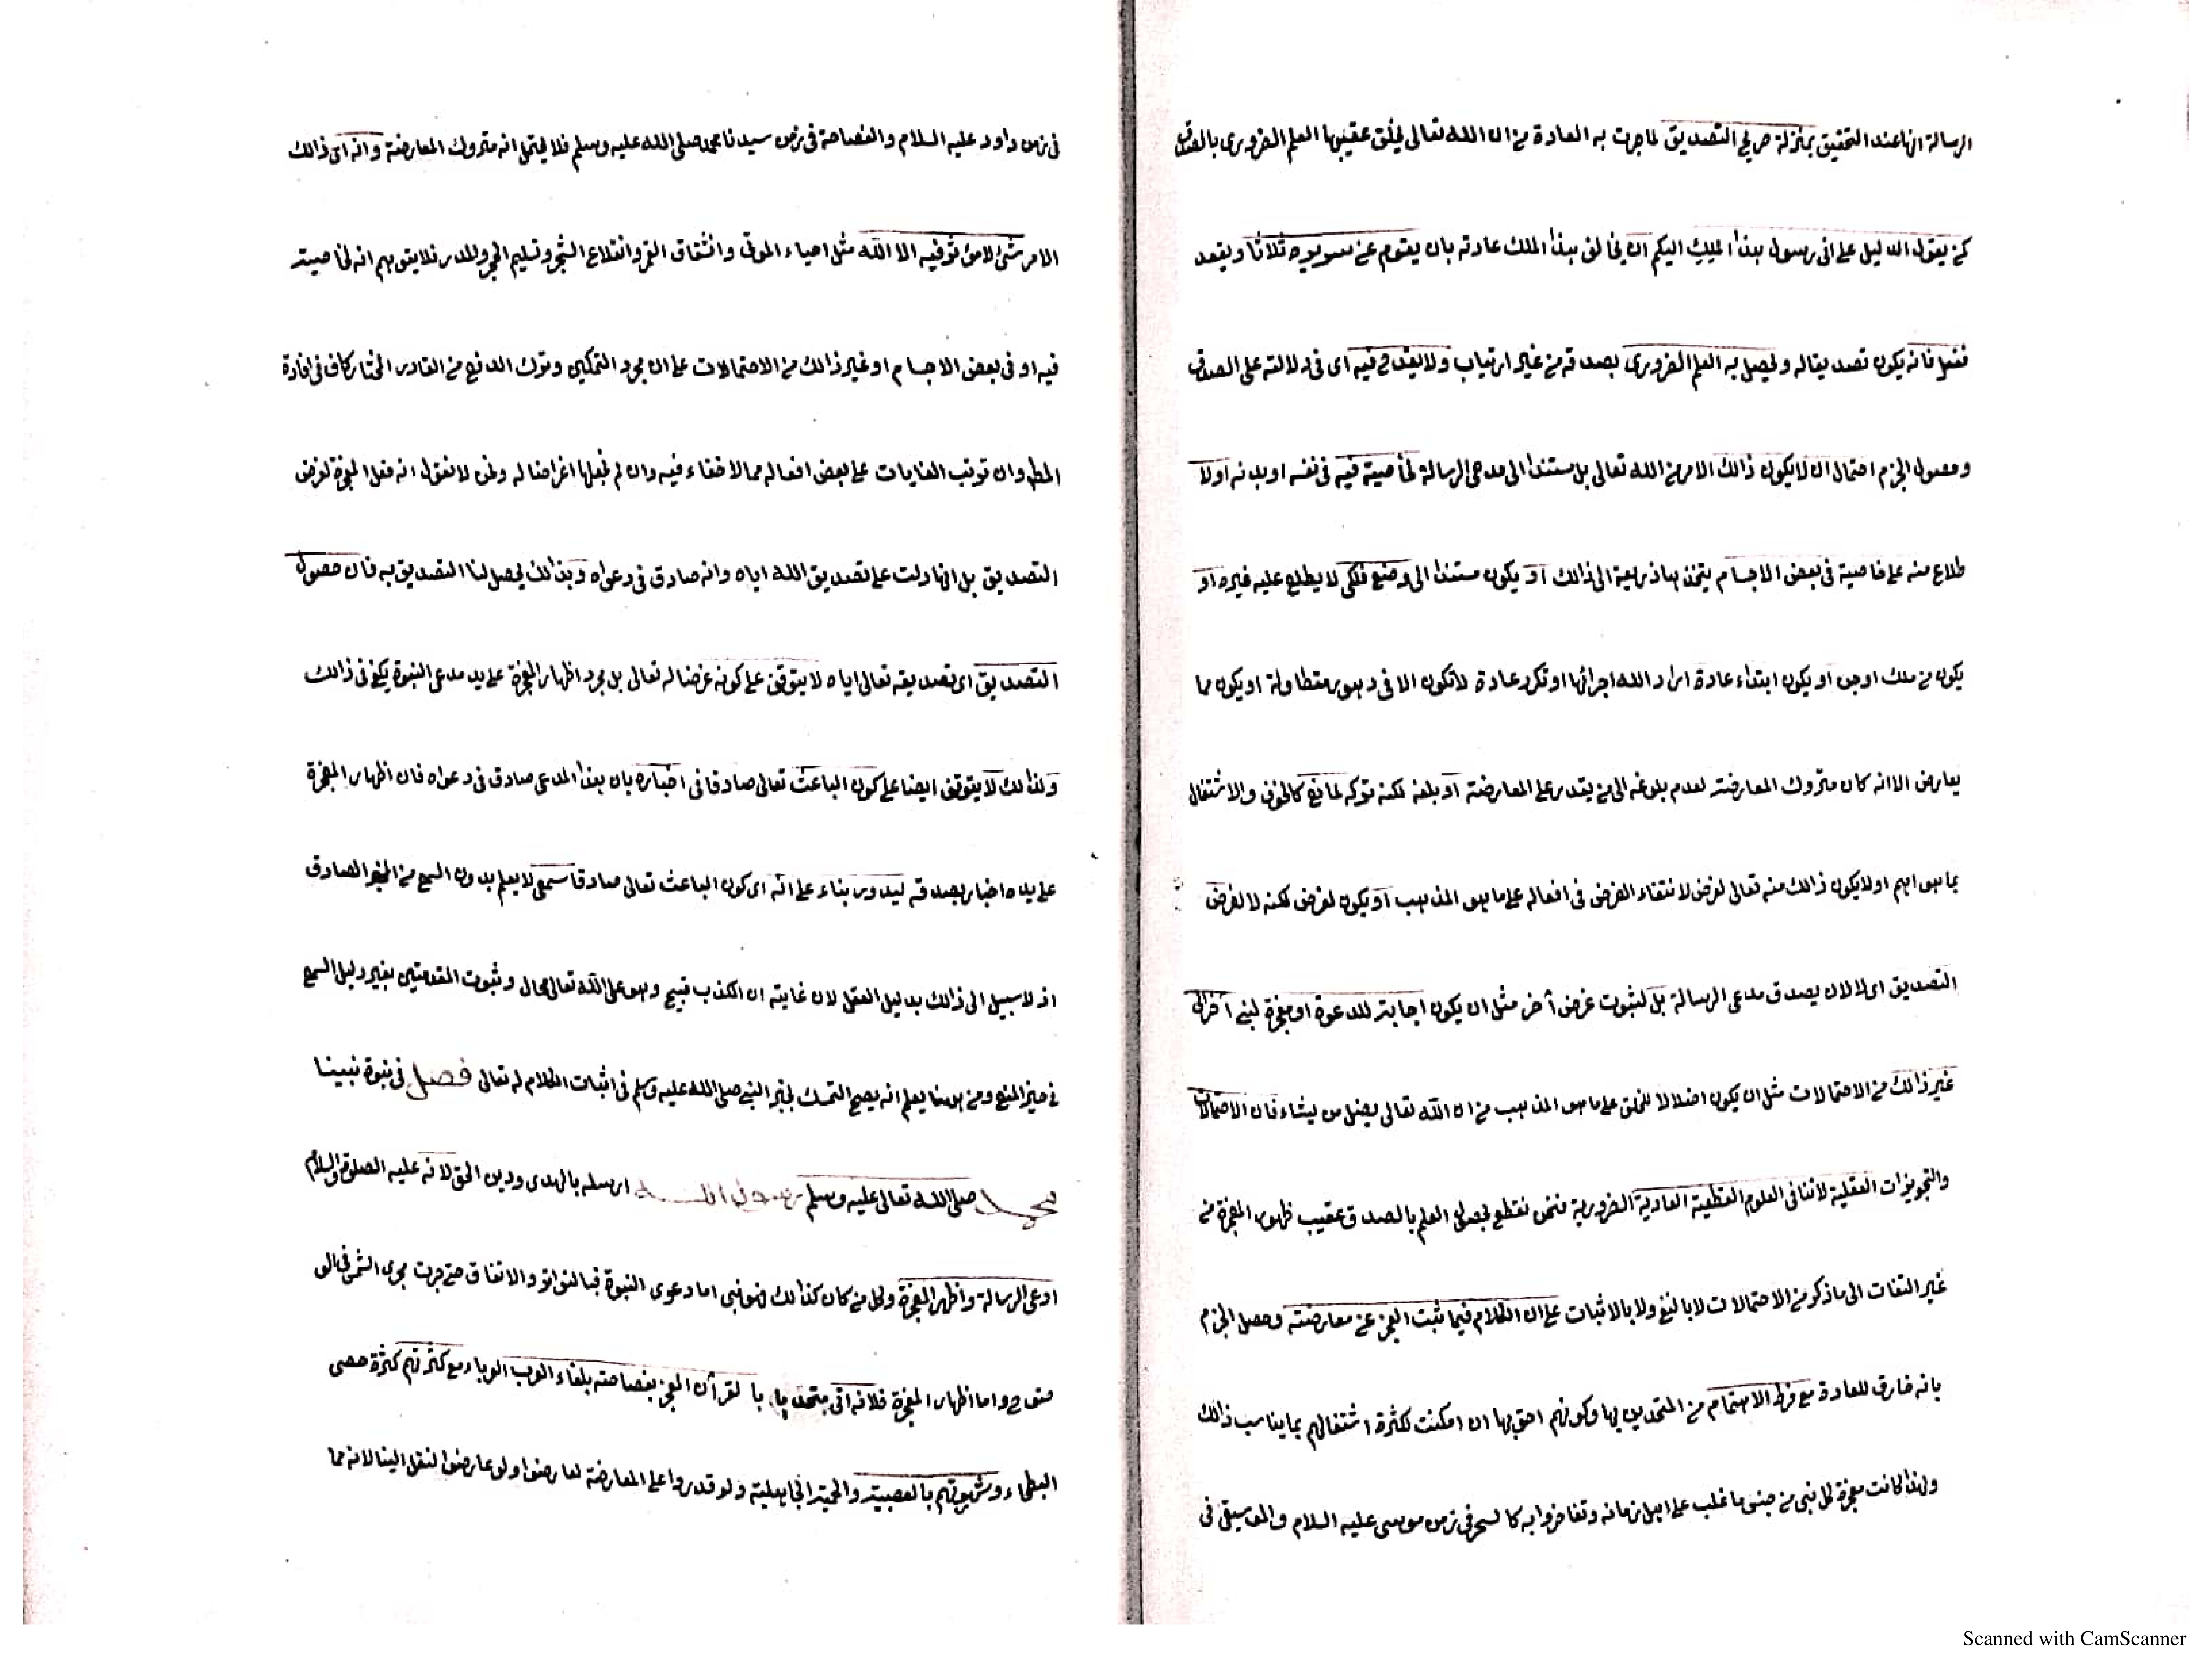 الرسالة انها عند التحقيق بمنزلة صريح التصديق لما جرت به العادة من ان الله تعالى يخلق عقيبها العلم الضرورى بالصدق
كمن يقول الدليل على انى رسول هذا الملك اليكم ان يخالف هذا الملك عادته بان يقوم عن سريره ثلاثا ويقعد
ففعل فانه يكون تصديقا له ويحصل به العلم الضرورى بصدقه من غير ارتياب ولا يقدح فيه اى فى دلالته على الصدق
وحصول الجزم احتمال ان لا يكون ذالك الامر من الله تعالى بل مستندا الى مدعى الرسالة لخاصية فيه فى نفسه او بدنه اولا
طلاع منه على خاصية فى بعض الاجسام يتخذها ذريعة الى ذالك او يكون مستندا الى وضع فلكى لا يطلع عليه غيره او
يكون من ملك او جن او يكون ابتداء عادة اراد الله اجرائها او تكرر عادة لا تكون الا فى دهور متطاولة او يكون مما
يعارض الا انه كان متروك المعارضة لعدم بلوغه الى من يقدر على المعارضة او بلغه لكنه تركه لمانع كالخوف والاشتغال
بما هو اهم او لا يكون ذالك منه تعالى لغرض لانتفاء الغرض فى افعاله على ما هو المذهب او يكون لغرض لكنه لا لغرض
التصديق اى لا لان يصدق مدعى الرسالة بل لثبوت غرض آخر مثل ان يكون اجابة للدعوة او معجزة لنبى آخر الى
غير ذالك من الاحتمالات مثل ان يكون اضلالا للخلق على ما هو المذهب من ان الله تعالى يضل من يشاء فان الاحتمالات
والتجويزات العقلية لا تنافى العلوم القطعية العادية الضرورية فنحن نقطع بحصول العلم بالصدق عقيب ظهور المعجزة من
غير التفات الى ما ذكر من الاحتمالات لا بالنفى ولا بالاثبات على ان الكلام فيما ثبت العجز عن معارضته وحصل الجزم
بانه خارق للعادة مع فرط الاهتمام من المتحدين بها وكونهم احق بها ان امكنت لكثرة اشتغالهم بما يناسب ذالك
ولهذا كانت معجزة كل نبى من جنس ما غلب على اهل زمانه وتفاخروا به كالسحر فى زمن موسى عليه السلام والموسيقى فى
فى زمن داود عليه السلام والفصاحة فى زمن سيدنا محمد صلى الله عليه وسلم فلا يحتمل انه متروك المعارضة وانه اى ذالك
الامر شئ لا مؤثر فيه الا الله مثل احياء الموتى وانشقاق القمر وانقلاع الشجر وتسليم الحجر والمدر فلا يتوهم انه لخاصيته
فيه او فى بعض الاجسام او غير ذالك من الاحتمالات على ان مجرد التمكين وترك الدفع من القادر المختار كاف فى افادة
المط وان ترتب الغايات على بعض افعاله مما لا خفاء فيه وان لم نجعلها اغراضا له ونحن لا نقول انه فعل المعجزة لغرض
التصديق بل انها دلت على تصديق الله اياه وانه صادق فى دعواه وبذالك يحصل لنا التصديق به فان حصول
التصديق اى تصديقه تعالى اياه لا يتوقف على كونه غرضا له تعالى بل مجرد اظهار المعجزة على يد مدعى النبوة يكفى فى ذالك
ولذالك لا يتوقف ايضا على كون الباعث تعالى صادقا فى اخباره بان هذا المدعى صادق فى دعواه فان اظهار المعجزة
على يده اخبار بصدقه ليدور بناء على انه اى كون الباعث تعالى صادقا سمعى لا يعلم بدون السمع من المخبر الصادق
اذ لا سبيل الى ذالك بدليل العقل لان غايته ان الكذب قبيح وهو على الله تعالى محال وثبوت المقدمتين بغير دليل السمع
فى حيز المنع ومن ههنا يعلم انه يصح التمسك بخبر النبى صلى الله عليه وسلم فى اثبات الكلام له تعالى فصل فى نبوة نبينا
محمد صلى الله تعالى عليه وسلم رسول الله ارسله بالهدى ودين الحق لانه عليه الصلوة والسلام
ادعى الرسالة واظهر المعجزة وكل من كان كذالك فهو نبى اما دعوى النبوة فبالتواتر والاتفاق حتى جرت مجرى الشمس فى الو
ضوح واما اظهار المعجزة فلانه اتى متحديا بالقرآن المعجز بفصاحته بلغاء العرب العرباء مع كثرتهم كثرة حصى
البطحاء وشهرتهم بالعصبية والحمية الجاهلية ولو قدروا على المعارضة لعارضوا ولو عارضوا لنقل الينا لانه مما
Scanned with CamScanner